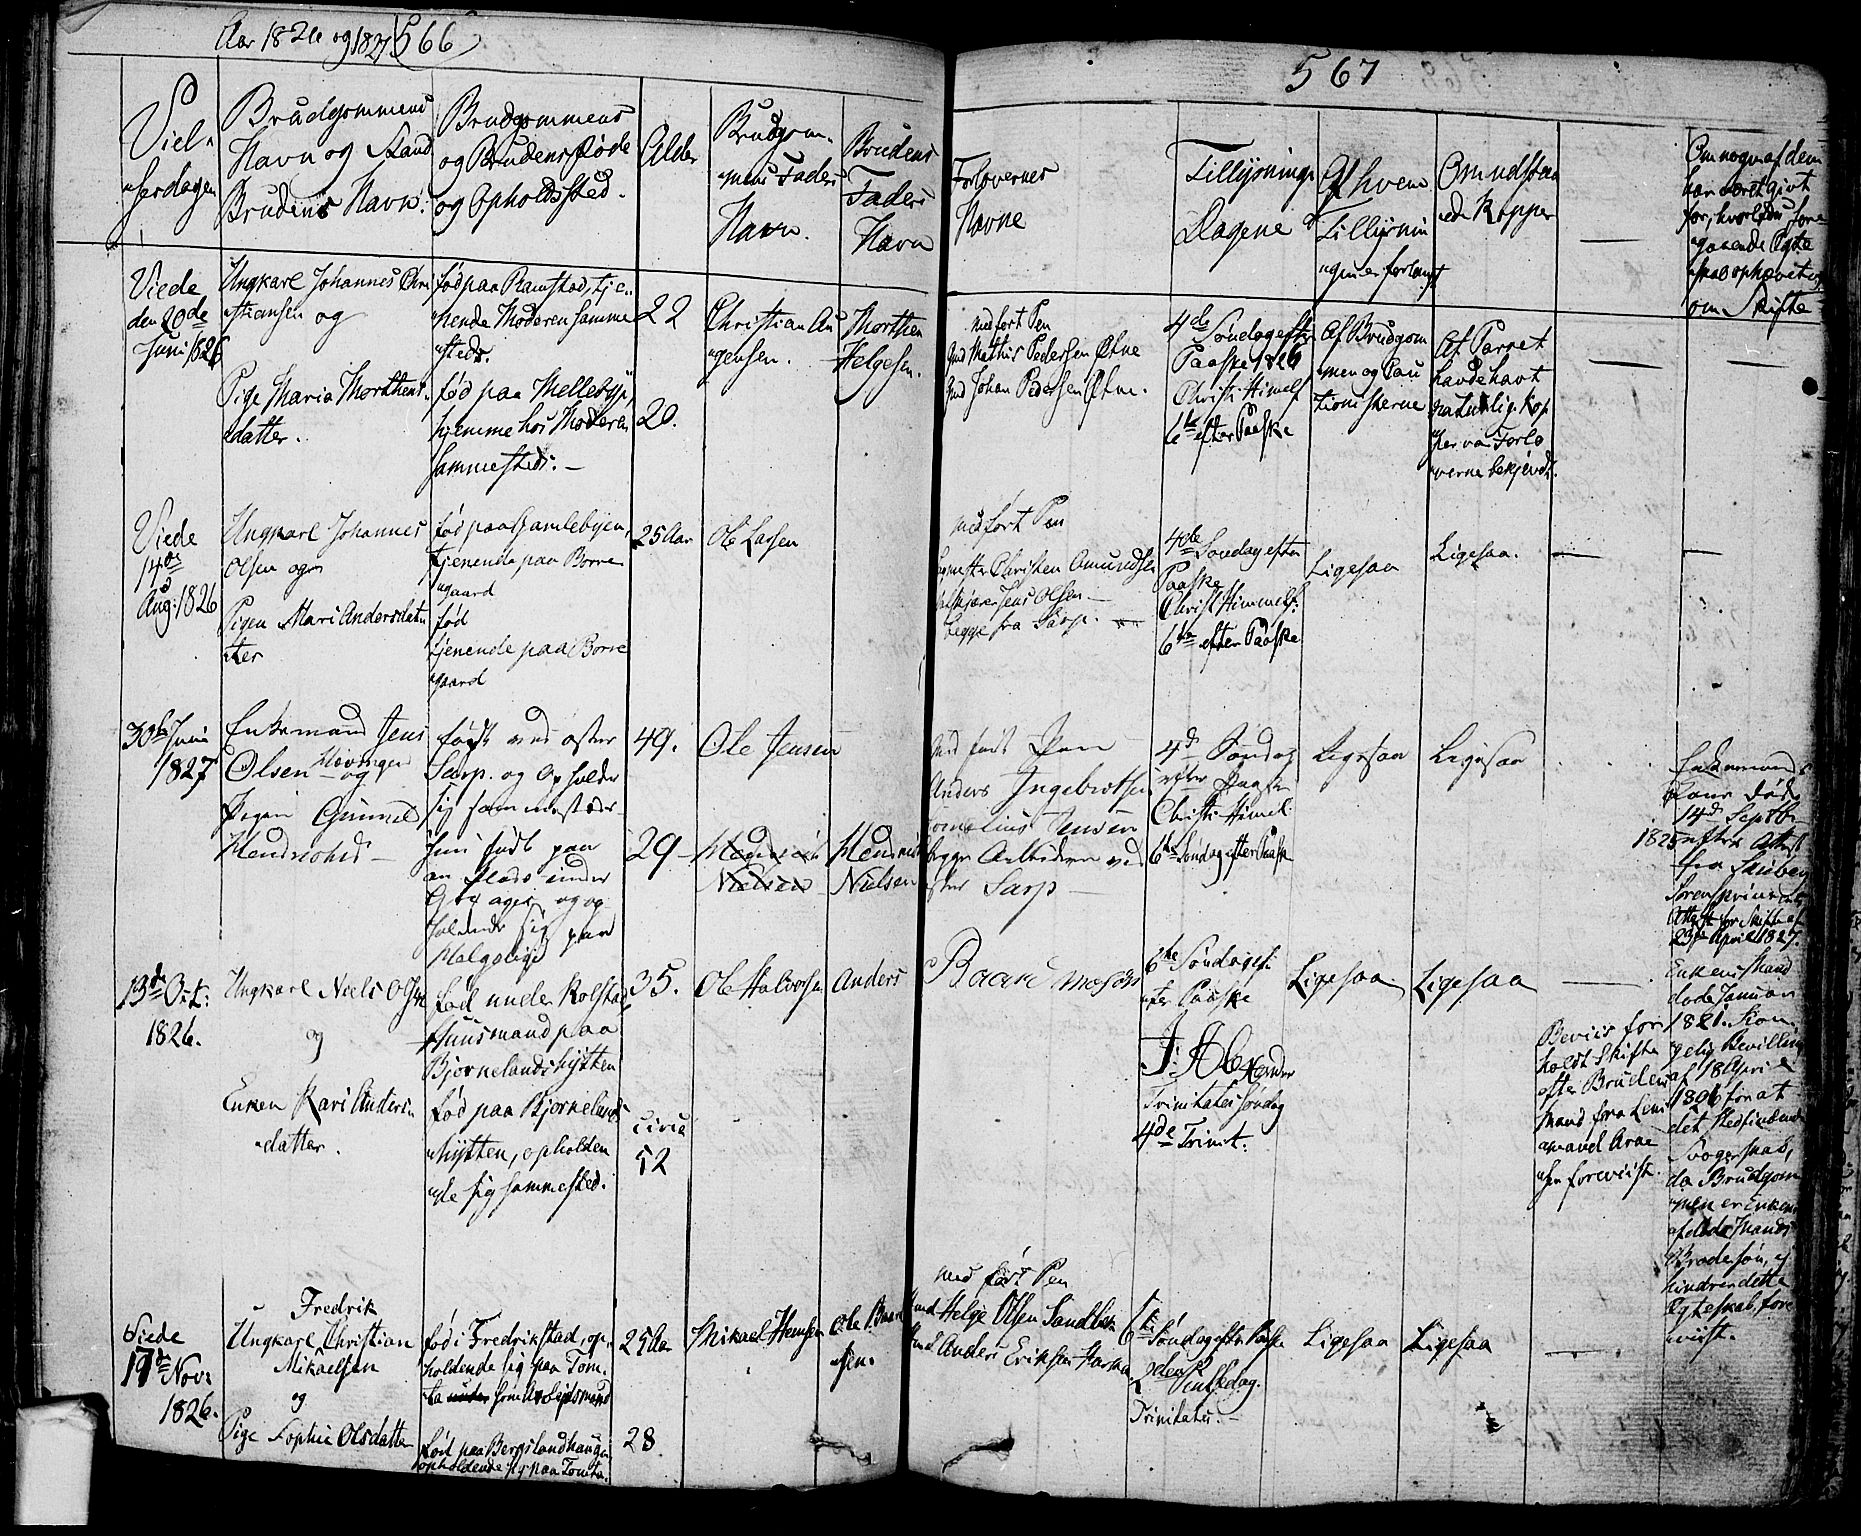 Aar 1826 og 1827 566
567
Viel-
sesdagen
Brudgommens
Navn og Stand
Brudens Navn.
Brudgommens
og Brudens Føde
og Opholdssted.
Alder
Brudgom-
mens Faders
Navn.
Brudens
Faders
Navn
Forlovernes
Navne
Tillysnings
Dagene
Af hvem
Tillysnin
gen er forlangt
Om
Kopper
Om nogen af dem
har været givt
før, hvorledes fore
gaaende Ægte
skab ophævet og
om Skifte
Viede
den 20de
Juni 1826
Ungkarl Johannes Chri
stiansen og
Pige Maria Morthens
datter.
født paa Ramstad, tje-
nende Moderen samme
steds.
fød paa Mellebye,
hjemme hos Moderen
sammesteds.
22
20.
Christian Au
gensen.
Morthen
Helgesen.
med ført Pen
Gmd Mathis Pedersen Østne
Gmd Johan Pedersen Østne.
4de Søndag efter
Paaske 1826
Christi Himelf
6te efter Paaske
Af Brudgom
men og Cau
tionisterne
Af Parret
havde havt
naturlige Kop
per var Forlo
verne bekjendt.
Viede
14de
Aug: 1826
Ungkarl Johannes
Olsen og
Pigen Mari Andersdat
ter
fød paa Gamlebyen,
tjenende paa Borre
gaard
fød
tjenende paa Borre
gaard
25 Aar
Ole Larsen
med ført Pen
Christen Amundsen
Jens Olsen
begge fra Sarp.
4de Søndag efter
Paaske
Christi Himmelf:
6te efter Paaske
Ligesaa
Ligesaa.
30te Juni
1827
Enkemand Jens
Olsen Hövingen
og
Pigen Gunnild
Hendrichsd
født ved øster
Sarp. og Opholder
sig sammesteder
hun født paa
en Plads under
og op-
holdende sig paa
49.
29
Ole Jensen
Hendrich
Nielsen
Hendrich
Nielsen
med ført Pen
Anders Ingebretsen
Cornelius Jensen
begge Arbeidere ved
øster Sarp
4de Søndag
efter Paaske
Christi Himel:
6te Søndag efter Paaske
Ligesaa
Ligesaa
Enkemandens
Kone død
14de Septbr
1825 efter Attest
fra Skieberg
Sorenskriverens
Attest for Skifte af
23de April 1827.
13de Oct:
1826.
Ungkarl Niels Olsen
og
Enken Kari Anders
datter.
fød under Kolstad
Huusmand paa
Bjørnelandshytten
fød paa Bjørnelands
hytten, opholden
de sig sammested.
35.
circa
52
Ole Halvorsen
Anders
Baard
6te Søndag
efter Paaske
Trinitatis Søndag
4de Trinit.
Ligesaa
Ligesaa
Beviis for
holdt Skifte
efter Brudens
Mand fra Lens
mand Arne
sen foreviist.
Enkens Mand
døde Januar
1821. Kon
gelig Bevilling
af 18 April
1806 for at
det Stedfindende
Svogerskab,
da Brudgom
men er Enkens
afdøde Mands
Brodersøn, ej
hindrer dette
Ægteskab, fore
viist.
Viede
17de Nov:
1826.
Fredrik
Ungkarl Christian
Mikaelsen
og
Pige Sophie Olsdatter
fød i Fredrikstad, op-
holdende sig paa Tom-
ta under som Arbeidsmand
fød paa Bergslandhaugen
opholdende sig paa Tomta.
25 Aar
28
Mikael Hansen
Ole Baard
sen.
med ført Pen
Gmd Helge Olsen Sandbek
Gmd Anders Eriksen
6te Søndag efter Paaske
2den Pintsedag.
Trinitatis.
Ligesaa
Ligesaa